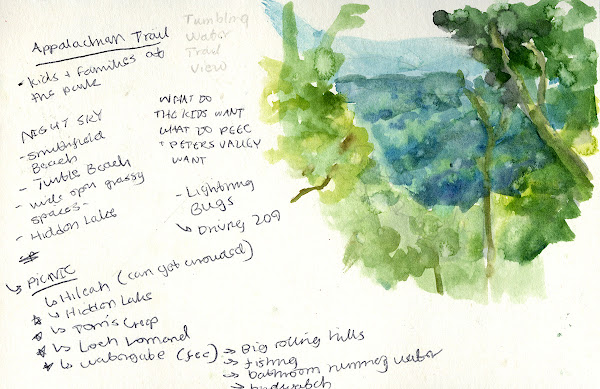 Appalachian Trail
- kids + families at
the park
Tumbling
Water
Trail
View
NIGHT SKY
- Smithfield
Beach
- Turtle Beach
- wide open grassy
spaces -
- Hidden Lake
WHAT DO
THE KIDS WANT
WHAT DO PEEC
+ PETERS VALLEY
WANT
- Lightning
Bugs
↳ Driving 209
↳ PICNIC
↳ (can get crowded)
↳ Hidden Lake
↳ Tom's Creek
↳ Loch Lomond
↳ Watergate (fee)
→ Big rolling hills
→ fishing
→ bathroom running water
→ birdwatch